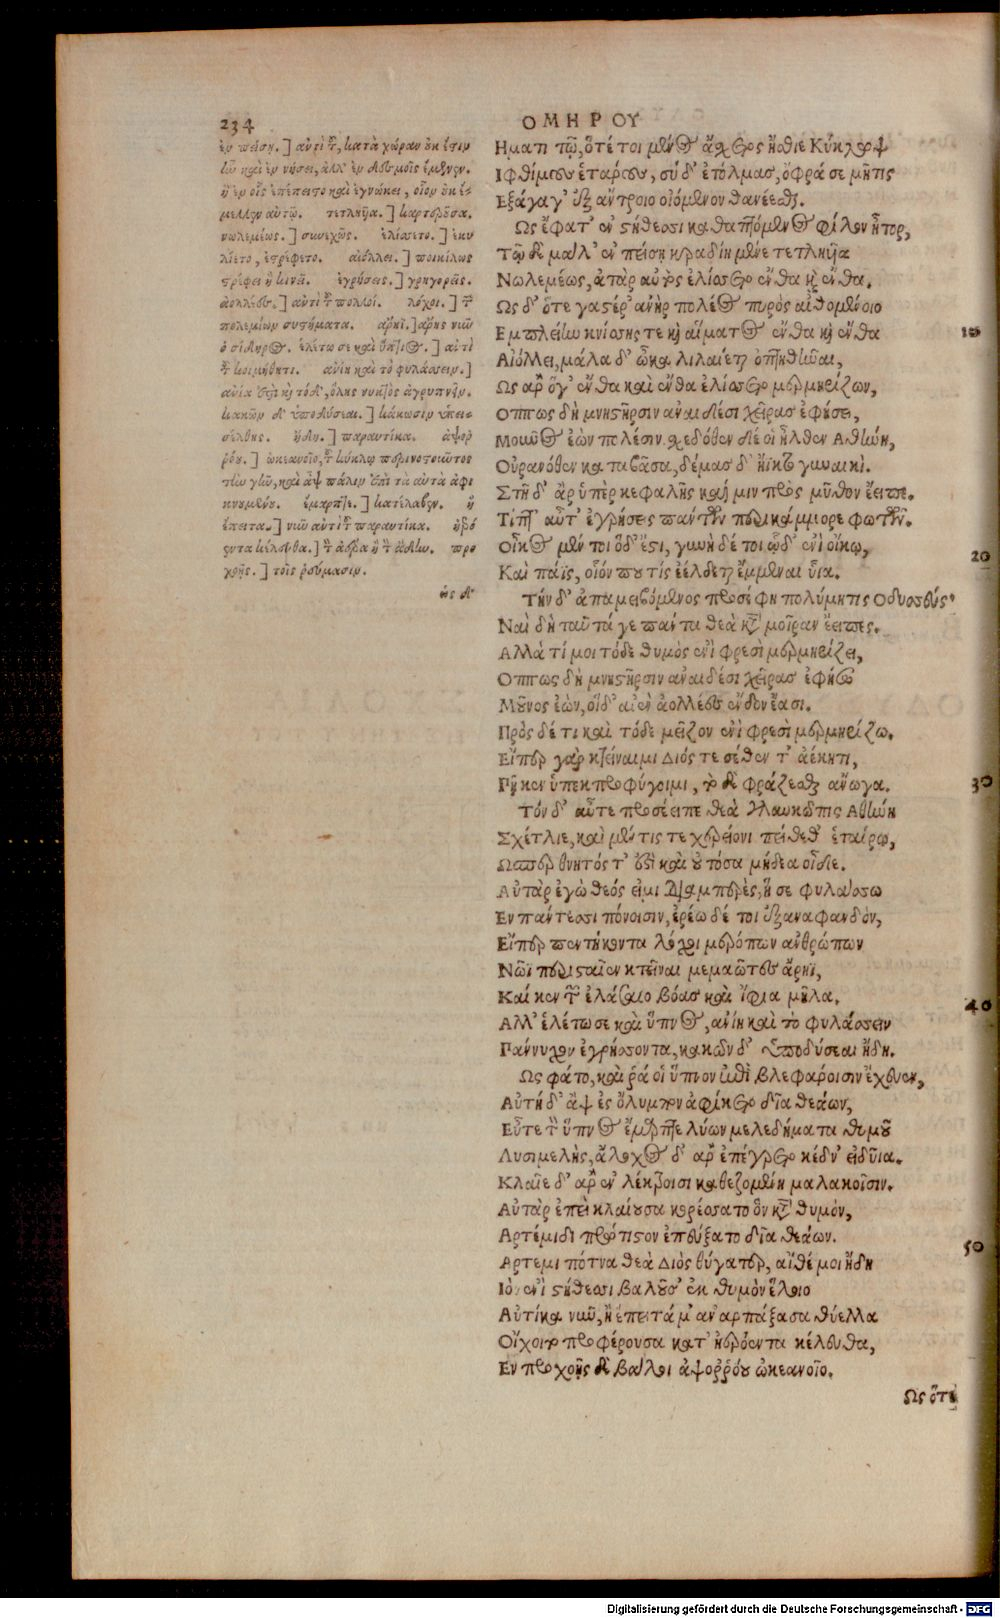 234
ΟΜΗΡΟΥ
ἐν πείσῃ.] ἀντὶ τοῦ, κατὰ χώραν οὐκ ἔστιν
καὶ ἐν νήσει, ἀλλ' ἐν δεσμοῖς ἔμενεν.
ἢ ἐν οἷς ἐπέπειστο καὶ ἐγνώκει, οἷον οὐκ ἔ-
μελλεν αὐτῷ. τετληυῖα.] καρτεροῦσα.
νωλεμέως.] συνεχῶς. ἑλίσσετο.] ἐκυ
λίετο, ἐστρέφετο. αἰόλλει.] ποικίλως
στρέφει ἢ κινεῖ. ἐγρήσσεις.] γρηγορεῖς.
ἀολλέες.] ἀντὶ τοῦ πολλοί. λόχοι.] τὰ
πολεμίων συστήματα. ἄρηϊ.] ἄρης νῦν
ὁ σίδηρος. ἑλέτω σε καὶ ὕπνος.] ἀντὶ
τοῦ κοιμήθητι. ἀνίη καὶ τὸ φυλάσσειν.]
ἀνία ἐστὶ καὶ τόδ', ὅλης νυκτὸς ἀγρυπνεῖν.
κακῶν δ' ὑποδύσεαι.] κάκωσιν ὑπει-
σέλθῃς. ἤδη.] παραυτίκα. ἀψορ
ρόου.] ὠκεανοῖο, τοῦ κύκλῳ περινοστοῦντος
τὴν γῆν, καὶ ἂψ πάλιν ἐπὶ τὰ αὐτὰ ἀφι
κνουμένου. ἔμαρπτε.] κατέλαβεν. ἢ
ἔπειτα.] νῦν ἀντὶ τοῦ παραυτίκα. ἠερό
εντα κέλευθα.] τὸν ἀέρα ἢ τὸν ᾅδην. προ
χοῇς.] τοῖς ῥεύμασιν.
ὡς δ'
Ηματι τῷ, ὅτέ τοι μένος ἄσχετος ἤσθιε Κύκλωψ
Ιφθίμους ἑτάρους, σὺ δ' ἐτόλμας, ὄφρά σε μῆτις
Εξάγαγ' ἐξ ἄντροιο οἰόμενον θανέεσθαι.
Ως ἔφατ' ἐν στήθεσσι καθαπτόμενος φίλον ἦτορ,
Τῷ δὲ μάλ' ἐν πείσῃ κραδίη μένε τετληυῖα
Νωλεμέως, ἀτὰρ αὐτὸς ἑλίσσετο ἔνθα καὶ ἔνθα.
Ως δ' ὅτε γαστέρ' ἀνὴρ πολέος πυρὸς αἰθομένοιο
Εμπλείην κνίσσης τε καὶ αἵματος ἔνθα καὶ ἔνθα
10
Αἰόλλει, μάλα δ' ὦκα λιλαίεται ὀπτηθῆναι,
Ως ἄρ' ὅγ' ἔνθα καὶ ἔνθα ἑλίσσετο μερμηρίζων,
Οππως δὴ μνηστῆρσιν ἀναιδέσι χεῖρας ἐφήσει,
Μοῦνος ἐὼν πολέσιν. σχεδόθεν δέ οἱ ἦλθεν Αθήνη,
Οὐρανόθεν καταβᾶσα, δέμας δ' ἤϊκτο γυναικί.
Στῆ δ' ἄρ ὑπὲρ κεφαλῆς καί μιν πρὸς μῦθον ἔειπε.
Τίπτ' αὖτ' ἐγρήσσεις πάντων περικάμμορε φωτῶν.
Οἶκος μέν τοι ὅδ' ἔστι, γυνὴ δέ τοι ᾧδ' ἐνὶ οἴκῳ,
20
Καὶ πάϊς, οἷόν πού τις ἐέλδεται ἔμμεναι υἷα.
Τὴν δ' ἀπαμειβόμενος προσέφη πολύμητις Οδυσσεύς.
Ναὶ δὴ ταῦτά γε πάντα θεὰ κατὰ μοῖραν ἔειπες.
Αλλά τί μοι τόδε θυμὸς ἐνὶ φρεσὶ μερμηρίζει,
Οππως δὴ μνηστῆρσιν ἀναιδέσι χεῖρας ἐφήσω
Μοῦνος ἐών, οἱ δ' αἰὲν ἀολλέες ἔνδον ἔασι.
Πρὸς δέ τι καὶ τόδε μεῖζον ἐνὶ φρεσὶ μερμηρίζω.
Εἴπερ γὰρ κτείναιμι Διός τε σέθεν τ' ἀέκητι,
Πῇ κεν ὑπεκπροφύγοιμι, τὸ δὲ φράζεσθαι ἄνωγα.
30
Τόν δ' αὖτε προσέειπε θεὰ γλαυκῶπις Αθήνη
Σχέτλιε, καὶ μέν τίς τε χερείονι πείθεθ' ἑταίρῳ,
Ωσπερ θνητός τ' ἐστὶ καὶ οὐ τόσα μήδεα οἶδε.
Αὐτὰρ ἐγὼ θεός εἰμι διαμπερὲς, ἥ σε φυλάσσω
Εν πάντεσσι πόνοισιν, ἐρέω δέ τοι ἐξαναφανδόν,
Εἴπερ πεντήκοντα λόχοι μερόπων ἀνθρώπων
Νῶϊ περισταῖεν κτεῖναι μεμαῶτες ἄρηϊ,
Καί κεν τῶν ἐλάσαιο βόας καὶ ἴφια μῆλα.
40
Αλλ' ἑλέτω σε καὶ ὕπνος, ἀνίη καὶ τὸ φυλάσσειν
Πάννυχον ἐγρήσσοντα, κακῶν δ' ὑποδύσεαι ἤδη.
Ως φάτο, καὶ ῥά οἱ ὕπνον ἐπὶ βλεφάροισιν ἔχευεν,
Αὐτὴ δ' ἂψ ἐς ὄλυμπον ἀφίκετο δῖα θεάων,
Εὖτε τὸν ὕπνος ἔμαρπτε λύων μελεδήματα θυμοῦ
Λυσιμελὴς, ἄλοχος δ' ἄρ' ἐπέγρετο κέδν' εἰδυῖα.
Κλαῖε δ' ἄρ' ἐν λέκτροισι καθεζομένη μαλακοῖσιν.
Αὐτὰρ ἐπεὶ κλαίουσα κορέσσατο ὃν κατὰ θυμὸν,
Αρτέμιδι πρώτιστον ἐπεύξατο δῖα θεάων.
50
Αρτεμι πότνα θεὰ Διὸς θύγατερ, αἴθέ μοι ἤδη
Ιὸν ἐνὶ στήθεσσι βαλοῦσ' ἐκ θυμὸν ἕλοιο
Αὐτίκα νῦν, ἢ ἔπειτά μ' ἀναρπάξασα θύελλα
Οἴχοιτο προφέρουσα κατ' ἠερόεντα κέλευθα,
Εν προχοῇς δὲ βάλοι ἀψορρόου ὠκεανοῖο.
Ως ὅτε
Digitalisierung gefördert durch die Deutsche Forschungsgemeinschaft - DFG